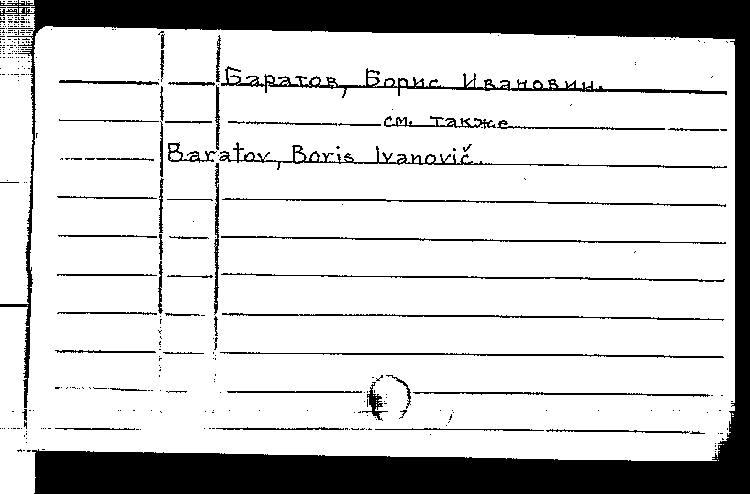 Баратов, Борис Иванович.
см. также
Baratov, Boris Ivanovič.